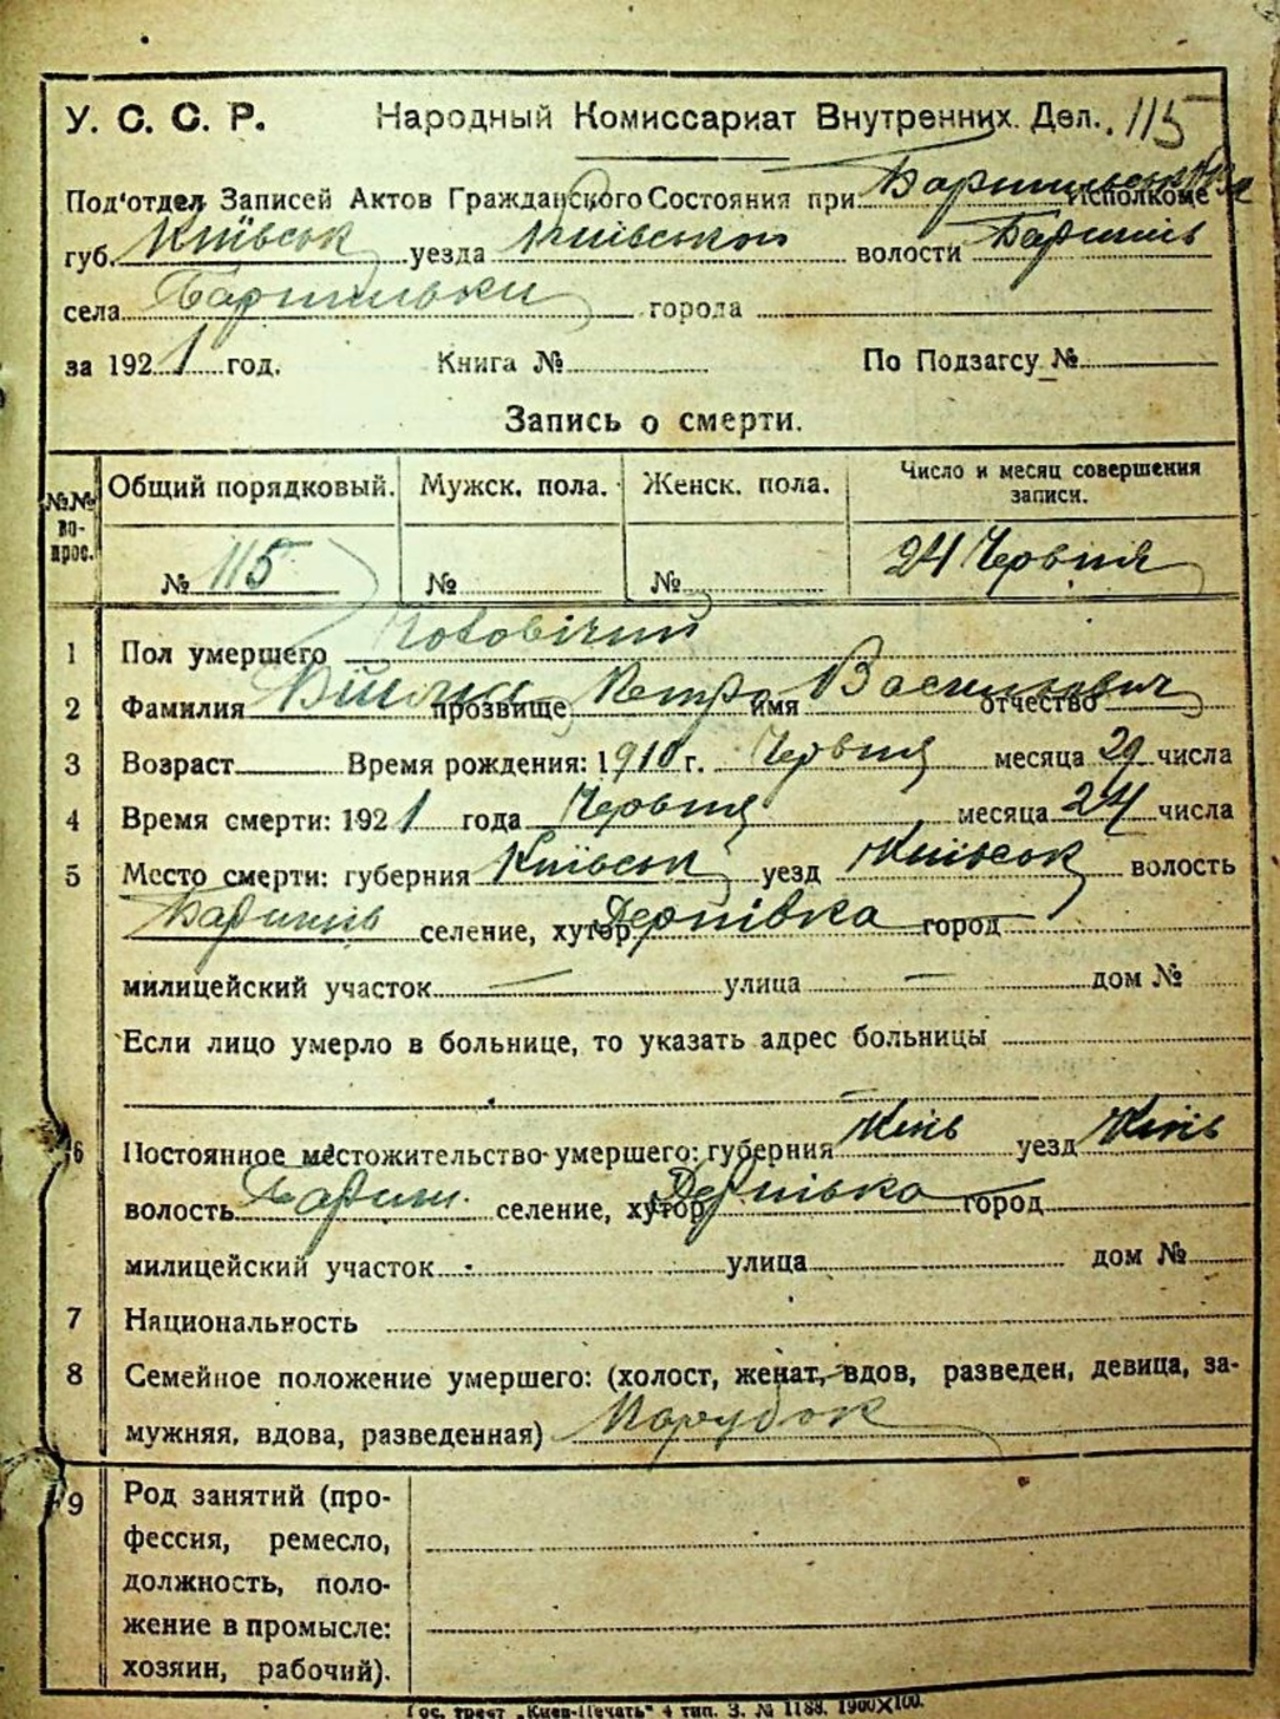 У. С. С. Р. Народный Комиссариат Внутренних Дел. 115
Под'отдел Записей Актов Гражданского Состояния при Исполкоме
губ. Київськ уезда Київської волости Баришів
села города
за 1921 год. Книга № По Подзагсу №
Запись о смерти.
№№ вопрос. Общий порядковый. Мужск. пола. Женск. пола. Число и месяц совершения записи.
№ 115 № № 24 Червня
1 Пол умершего Чоловічий
2 Фамилия прозвище Петро имя Васильович отчество
3 Возраст Время рождения: 1910 г. Червня месяца 29 числа
4 Время смерти: 1921 года Червня месяца 24 числа
5 Место смерти: губерния Київськ уезд Київськ волость
Баришів селение, хутор Дернівка город
милицейский участок — улица — дом №
Если лицо умерло в больнице, то указать адрес больницы
6 Постоянное местожительство умершего: губерния Київ уезд Київ
волость Бариш. селение, хутор Дернівка город
милицейский участок улица дом №
7 Национальность
8 Семейное положение умершего: (холост, женат, вдов, разведен, девица, за-
мужняя, вдова, разведенная) Парубок
9 Род занятий (про-
фессия, ремесло,
должность, поло-
жение в промысле:
хозяин, рабочий).
Гос. трест „Киев-Печать" 4 тип. З. № 1188. 1900×100.